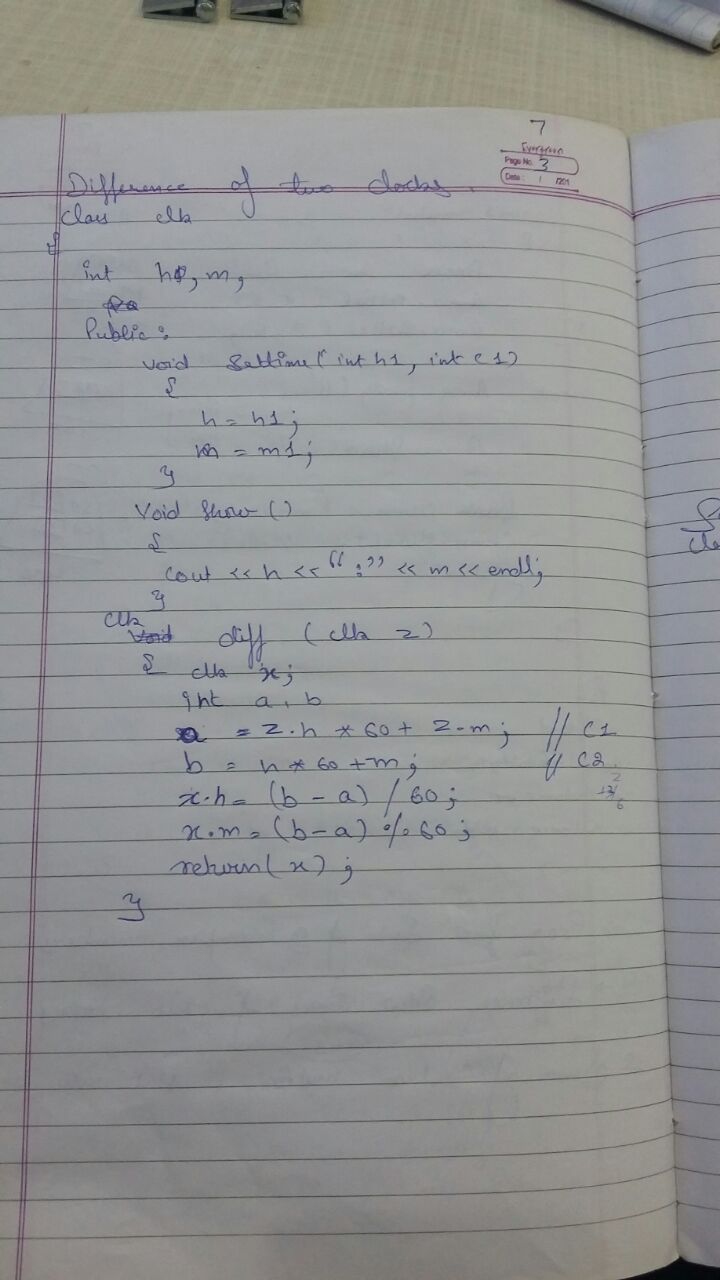 7
Evergreen
Page No. 3
Date: / /201
Difference of two clocks.
Class clk
{
int h, m;
Public:
void Settime(int h1, int c1)
{
h = h1;
m = m1;
}
Void Show()
{
Cout << h << ":" << m << endl;
}
Clk
Void diff (clk z)
{ clk x;
int a, b
a = z.h * 60 + z.m; // C1
b = h * 60 + m; // C2
x.h = (b - a) / 60;
x.m = (b - a) % 60;
return(x);
}